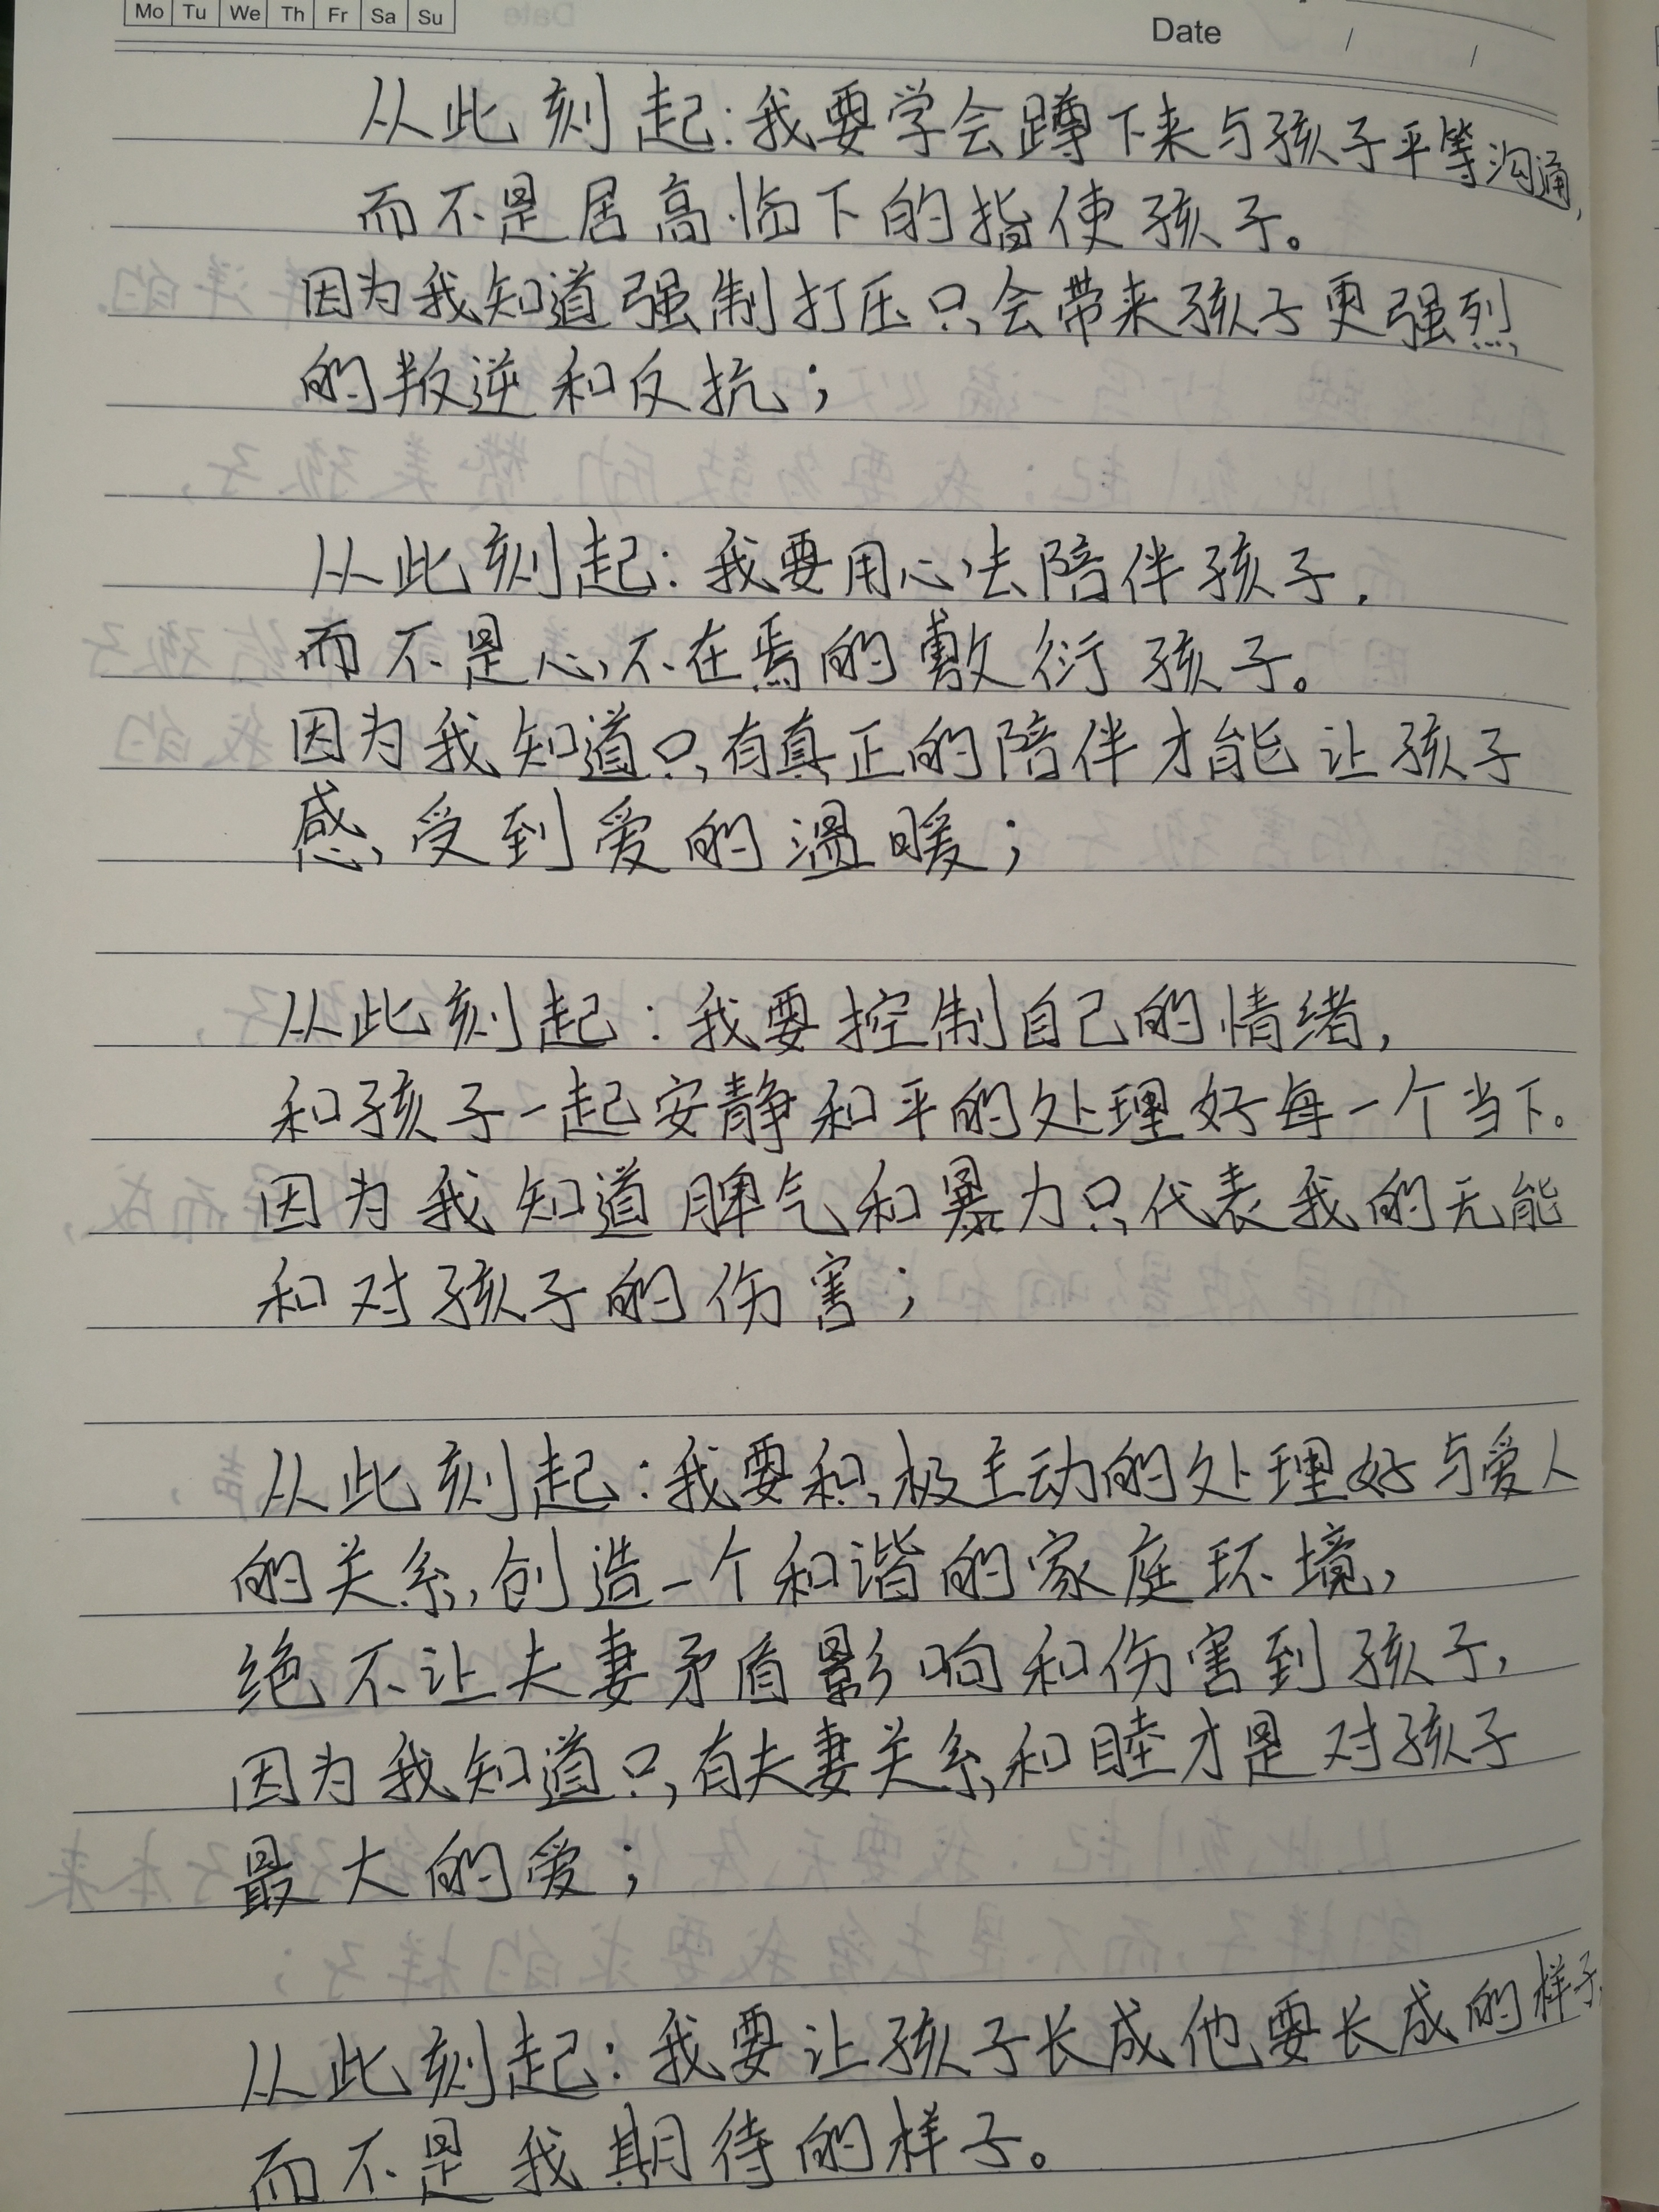 Mo Tu We Th Fr Sa Su
Date / /
从此刻起:我要学会蹲下来与孩子平等沟通,
而不是居高临下的指使孩子。
因为我知道强制打压只会带来孩子更强烈
的叛逆和反抗;
从此刻起:我要用心去陪伴孩子,
而不是心不在焉的敷衍孩子。
因为我知道只有真正的陪伴才能让孩子
感受到爱的温暖;
从此刻起:我要控制自己的情绪,
和孩子一起安静和平的处理好每一个当下。
因为我知道脾气和暴力只代表我的无能
和对孩子的伤害;
从此刻起:我要积极主动的处理好与爱人
的关系,创造一个和谐的家庭环境,
绝不让夫妻矛盾影响和伤害到孩子,
因为我知道只有夫妻关系和睦才是对孩子
最大的爱;
从此刻起:我要让孩子长成他要长成的样子,
而不是我期待的样子。